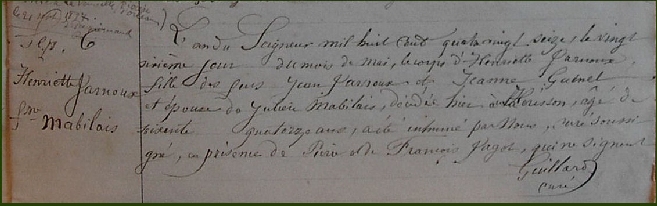 Sep. 6
Henriette
Jarnoux
fme Mabilais
L'an du Seigneur mil huit cent quatre vingt seize, le vingt
sixième jour du mois de mai, le corps d'Henriette Jarnoux,
fille des feus Jean Jarnoux et Jeanne
et épouse de Julien Mabilais, décédée hier à âgée de
soixante quatorze ans, a été inhumé par Nous, curé soussi
gné, en présence de Pierre et de François qui ne signent
Guillard
curé